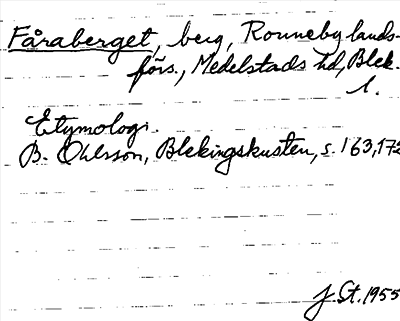 Fåraberget, berg, Ronneby lands-
förs., Medelstads hd, Blek.
l.
Etymologi.
B. Ohlsson, Blekingskusten, s. 163, 172
J. St. 1955